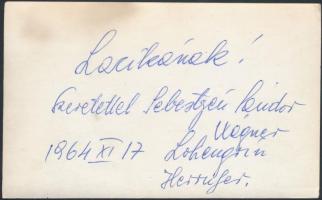 Lacikának!
Szeretettel Sebestyén Sándor
Wagner
1964 XI 17 Lohengrin
Herrufer.